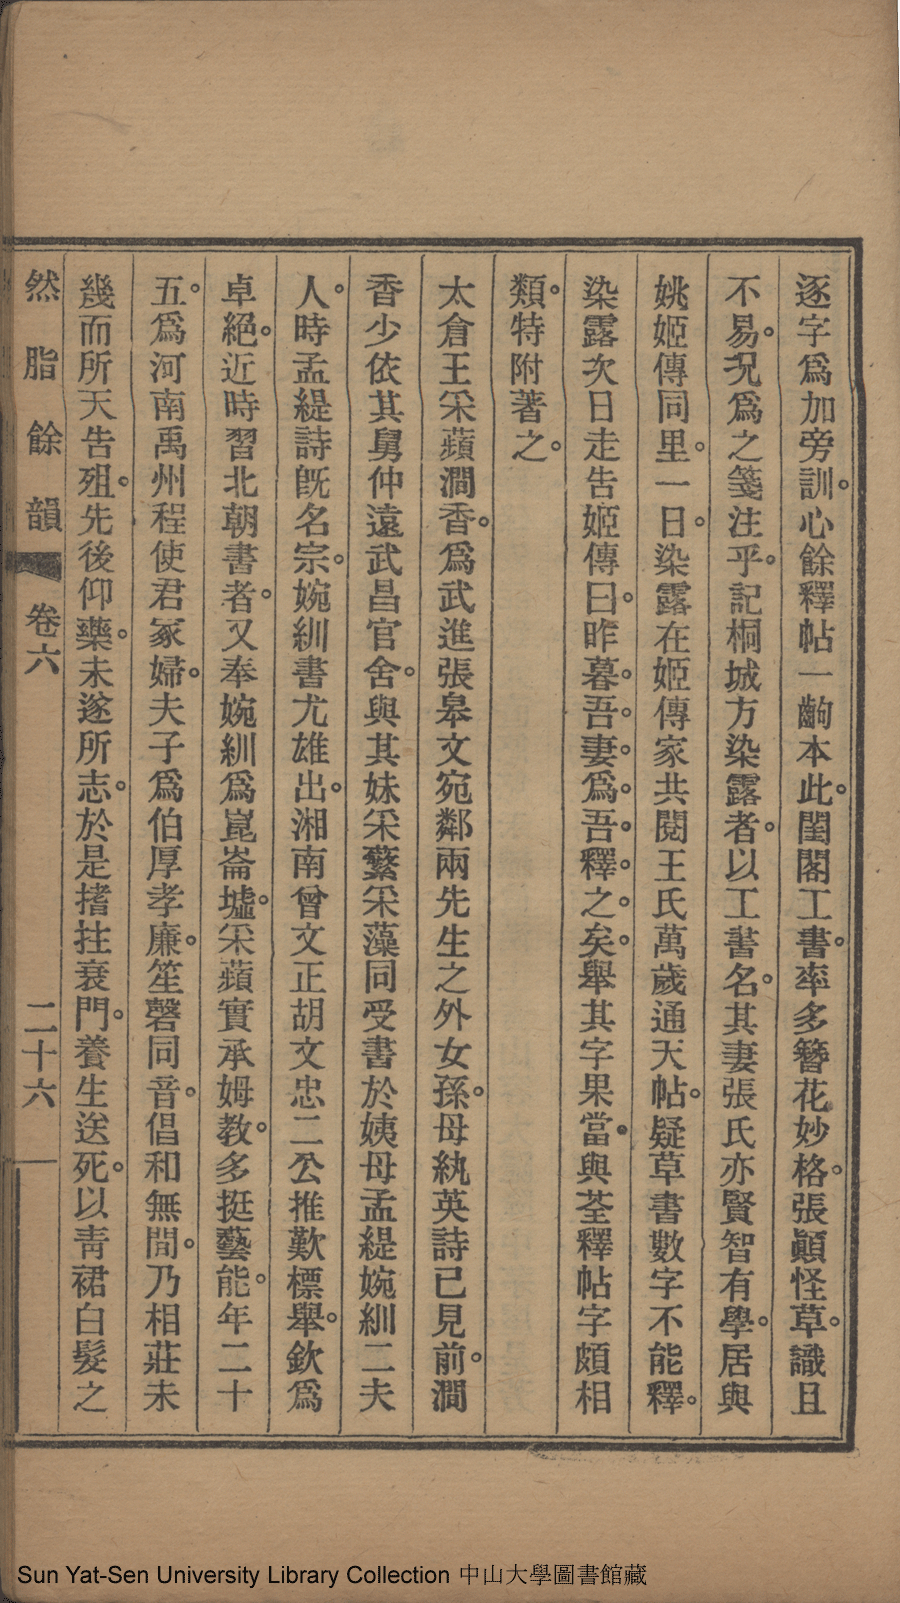 逐字爲加旁訓。心餘釋帖一齣本此。閨閣工書。率多簪花妙格。張顚怪草。識且
不易。况爲之箋注乎。記桐城方染露者。以工書名。其妻張氏亦賢智有學。居與
姚姬傳同里。一日。染露在姬傳家共閱王氏萬歲通天帖。疑草書數字不能釋。
染露次日走告姬傳曰。昨暮。吾。妻。爲。吾。釋。之。矣。舉其字果當。與荃釋帖字頗相
類。特附著之。
太倉王采蘋澗香。爲武進張皋文宛鄰兩先生之外女孫。母紈英詩已見前。澗
香少依其舅仲遠武昌官舍。與其妹采蘩采藻同受書於姨母孟緹婉紃二夫
人。時孟緹詩旣名宗。婉紃書尤雄出。湘南曾文正胡文忠二公推歎標舉。欽爲
卓絕。近時習北朝書者。又奉婉紃爲崑崙墟。采蘋實承姆教。多挺藝能。年二十
五。爲河南禹州程使君冢婦。夫子爲伯厚孝廉。笙磬同音。倡和無間。乃相莊未
幾而所天告殂。先後仰藥。未遂所志。於是搘拄衰門。養生送死。以靑裙白髮之
然脂餘韻 卷六 二十六
Sun Yat-Sen University Library Collection 中山大學圖書館藏